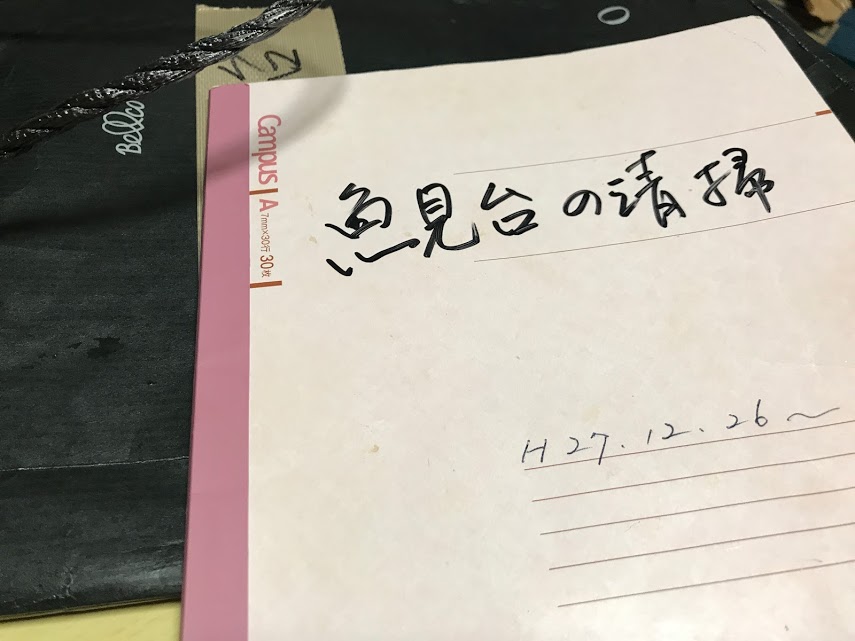 Bellco
Campus
A 7mm×30行 30枚
魚見台の清掃
H27.12.26〜